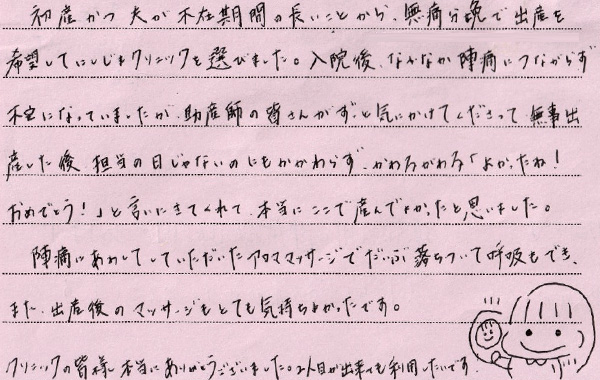 初産かつ夫が不在期間の長いことから、無痛分娩で出産を
希望してにしじまクリニックを選びました。入院後、なかなか陣痛につながらず
不安になっていましたが、助産師の皆さんがずっと気にかけてくださって無事出
産した後、担当の日じゃないのにもかかわらず、かわるがわる「よかったね!
おめでとう!」と言いにきてくれて、本当にここで産んでよかったと思いました。
陣痛にあわせてしていただいたアロママッサージでだいぶ落ちついて呼吸もでき、
また、出産後のマッサージもとても気持ちよかったです。
クリニックの皆様、本当にありがとうございました。2人目が出来ても利用したいです。